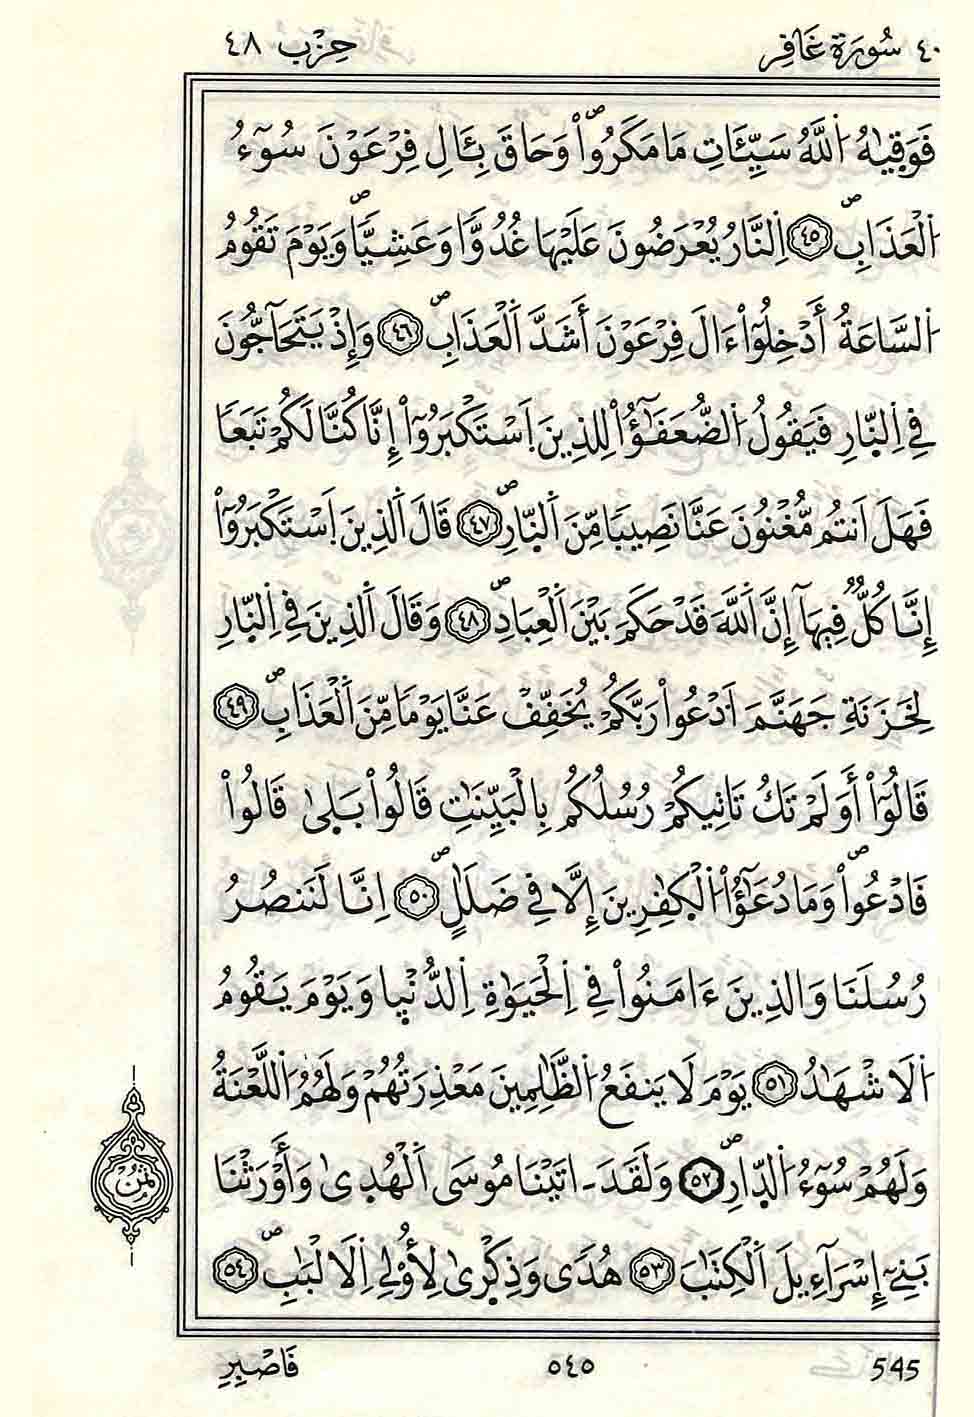 ٤٠ سُورَةُ غَافِرٍ حِزْب ٤٨
فَوَقِيٰهُ اُ۬للَّهُ سَيِّـَٔاتِ مَا مَكَرُواْۖ وَحَاقَ بِـَٔالِ فِرْعَوْنَ سُوٓءُ
اُ۬لْعَذَابِۖ ٤٥ اِ۬لنَّارُ يُعْرَضُونَ عَلَيْهَا غُدُوّٗا وَعَشِيّٗاۖ وَيَوْمَ تَقُومُ
اُ۬لسَّاعَةُ أَدْخِلُوٓاْ ءَالَ فِرْعَوْنَ أَشَدَّ اَ۬لْعَذَابِۖ ٤٦ وَإِذْ يَتَحَآجُّونَ
فِے اِ۬لنّ۪ارِ فَيَقُولُ اُ۬لضُّعَفَٰٓؤُاْ لِلذِينَ اَ۪سْتَكْبَرُوٓاْ إِنَّا كُنَّا لَكُمْ تَبَعاٗ
فَهَلَ اَنتُم مُّغْنُونَ عَنَّا نَصِيباٗ مِّنَ اَ۬لنّ۪ارِۖ ٤٧ قَالَ اَ۬لذِينَ اَ۪سْتَكْبَرُوٓاْ
إِنَّا كُلّٞ فِيهَآ إِنَّ اَ۬للَّهَ قَدْ حَكَمَ بَيْنَ اَ۬لْعِبَادِۖ ٤٨ وَقَالَ اَ۬لذِينَ فِے اِ۬لنّ۪ارِ
لِخَزَنَةِ جَهَنَّمَ اَ۟دْعُواْ رَبَّكُمْ يُخَفِّفْ عَنَّا يَوْماٗ مِّنَ اَ۬لْعَذَابِۖ ٤٩
قَالُوٓاْ أَوَلَمْ تَكُ تَاتِيكُمْ رُسُلُكُم بِالْبَيِّنَٰتِ قَالُواْ بَل۪ىٰ قَالُواْ
فَادْعُواْۖ وَمَا دُعَٰٓؤُاْ اُ۬لْكٰ۪فِرِينَ إِلَّا فِے ضَلَٰلٍۖ ٥٠ اِنَّا لَنَنصُرُ
رُسُلَنَا وَالذِينَ ءَامَنُواْ فِے اِ۬لْحَيَوٰةِ اِ۬لدُّنْي۪ا وَيَوْمَ يَقُومُ
اُ۬لَاشْهَٰدُ ٥١ يَوْمَ لَا يَنفَعُ اُ۬لظَّٰلِمِينَ مَعْذِرَتُهُمْ وَلَهُمُ اُ۬للَّعْنَةُ
وَلَهُمْ سُوٓءُ اُ۬لدّ۪ارِۖ ٥٢ وَلَقَدَ ـ اتَيْنَا مُوسَى اَ۬لْهُد۪ىٰ وَأَوْرَثْنَا
بَنِےٓ إِسْرَآءِيلَ اَ۬لْكِتَٰبَ ٥٣ هُدىٗ وَذِكْر۪ىٰ لِأُوْلِے اِ۬لَالْبَٰبِۖ ٥٤
ثُمُنْ
فَاصْبِرِ ٥٤٥ 545